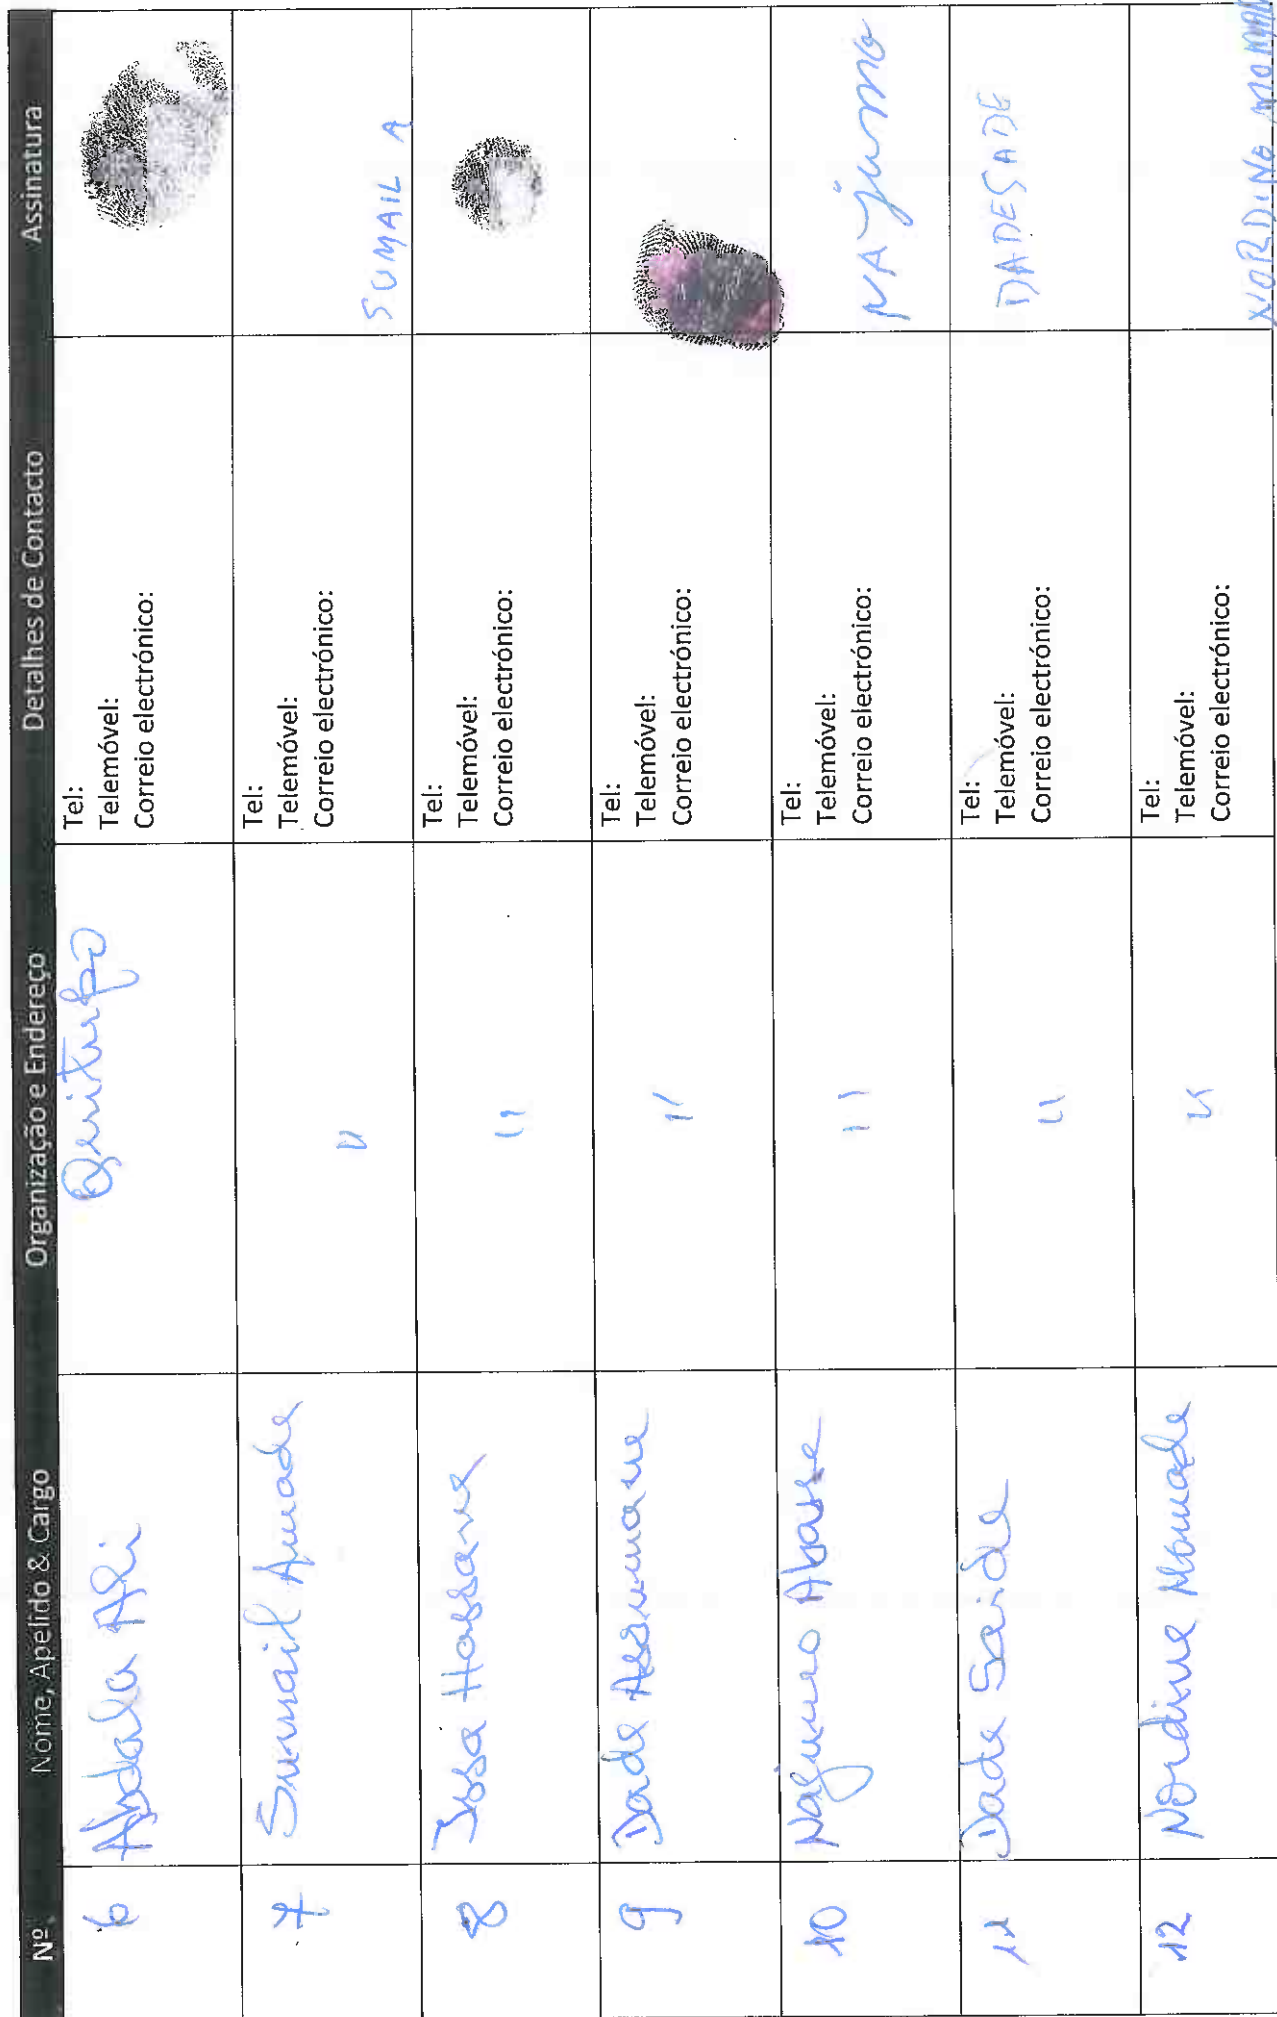 Nº Nome, Apelido & Cargo Organização e Endereço Detalhes de Contacto Assinatura
6 Abdala Ali Quitupo Tel:
Telemóvel:
Correio electrónico:
7 Sumail Amade 11 Tel:
Telemóvel:
Correio electrónico:
SUMAIL A
8 Issa Hassane 11 Tel:
Telemóvel:
Correio electrónico:
9 Dade Assumane 11 Tel:
Telemóvel:
Correio electrónico:
10 Najumo Abase 111 Tel:
Telemóvel:
Correio electrónico:
NAjumo
11 Dade Saide 11 Tel:
Telemóvel:
Correio electrónico:
DADESADE
12 Nordine Momade 11 Tel:
Telemóvel:
Correio electrónico:
NORDINO